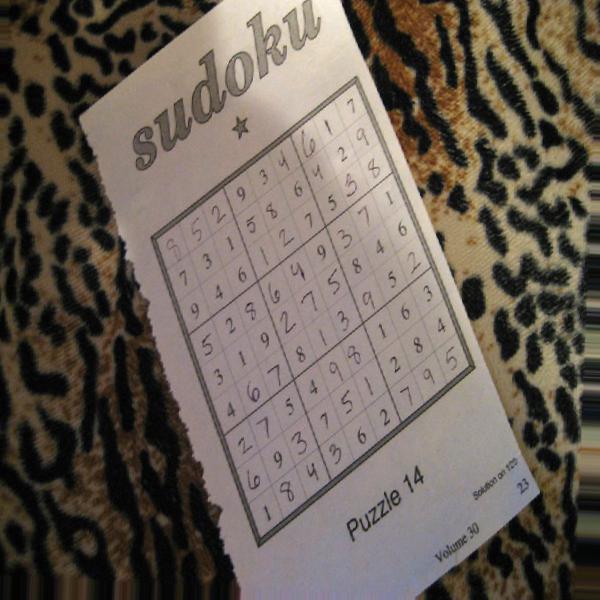 sudoku
8 5 2 9 3 4 6 1 7
7 3 1 5 8 6 4 2 9
9 4 6 1 2 7 5 3 8
5 2 8 6 4 9 3 7 1
3 1 9 2 7 5 8 4 6
4 6 7 8 1 3 9 5 2
2 7 5 4 9 8 1 6 3
6 9 3 7 5 1 2 8 4
1 8 4 3 6 2 7 9 5
Puzzle 14
Solution on
Volume 30
23